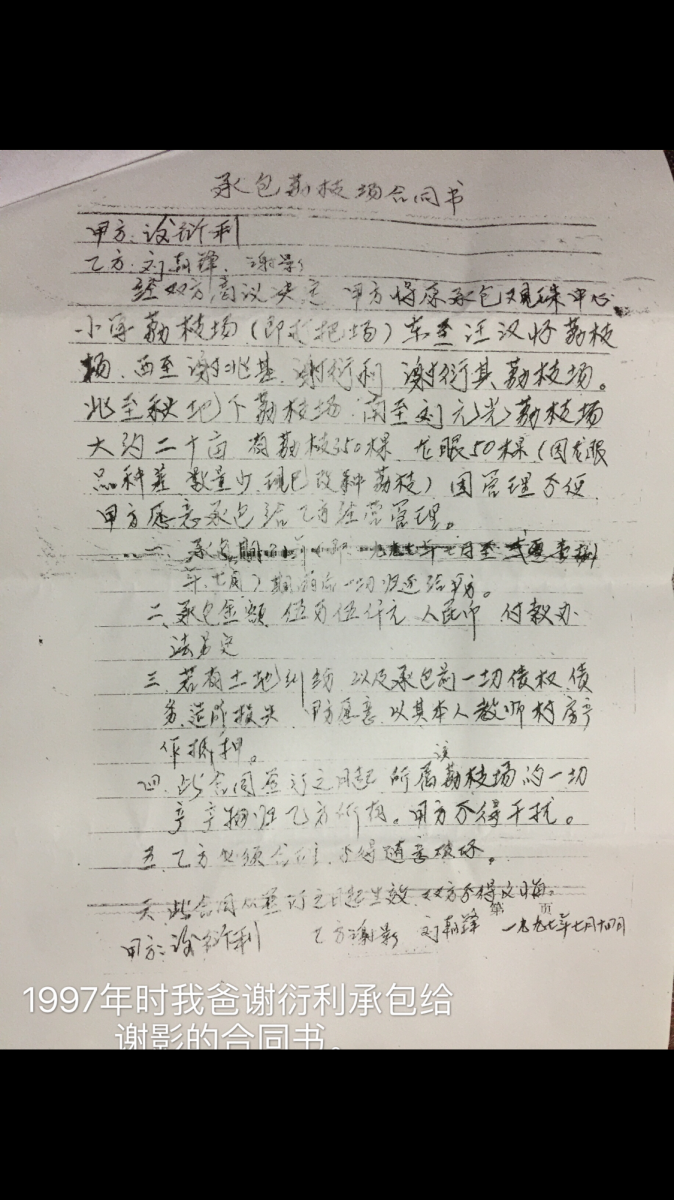 承包荔枝场合同书
甲方:谈衍利
乙方:刘朝锋、谢影
经双方商议决定 甲方将原承包 珠中心
小 荔枝场(即 把场)东至汪汉好荔枝
场、西至谢兆基、谢衍利、谢衍其荔枝场。
北至秧地下荔枝场、南至刘元光荔枝场
大约二十亩 有荔枝350棵、龙眼50棵(因龙眼
品种差、数量少、现已改种荔枝)因管理不便,
甲方愿意承包给乙方经营管理。
一、承包期 一九九七年七月至
年七月)期满后一切归还给甲方。
二、承包金额 伍万伍仟元 人民币 付款办
法另定
三、若有土地纠纷 以及承包前一切债权、债
务、造成损失、甲方愿意以其本人教师村房产
作抵押。
四、此合同签订之日起 所属该荔枝场的一切
产物归乙方所有。甲方不得干扰。
五、乙方必须合 不得随意破坏。
六、此合同从签订之日起生效、双方不得反悔。
第 页
甲方:谈衍利 乙方:谢影 刘朝锋 一九九七年七月十四日
1997年时我爸谢衍利承包给
谢影的合同书。